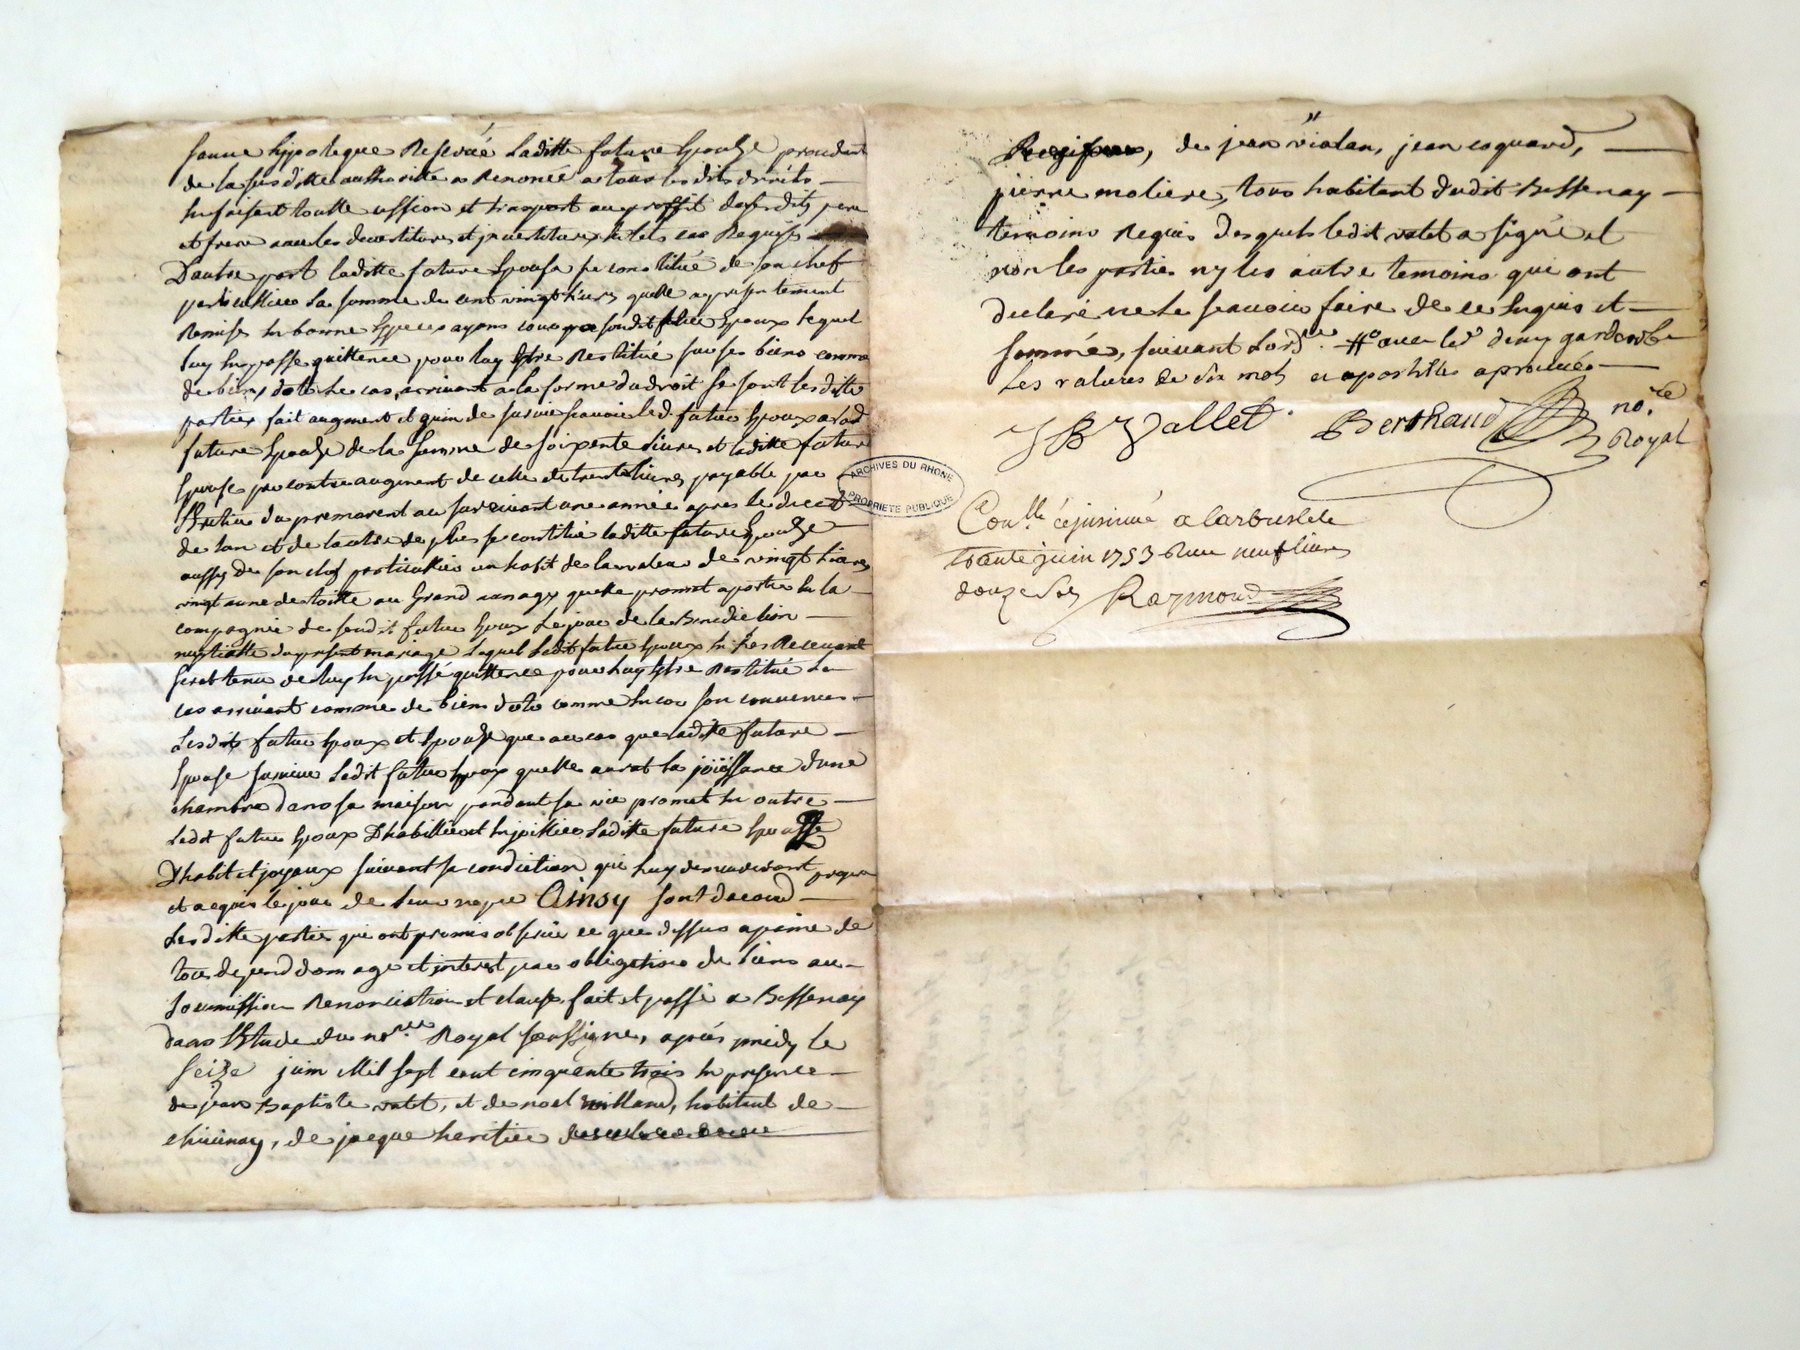 sonne hypoteque Reservé laditte future Epouze procedant
de la susditte authorité a Renoncé a tous lesdits droits
En faisant toutte cession et trasport au proffit desesdits pere
et frere avec les devetitures et jnvetitures En tels cas Requis
D'autre part laditte future Epouse se constitue de son chef
particullier La somme de cent vingt livres quelle a presentement
Remise En bonne Espece ayant cour sondit futur Epoux lequel
luy En passe quittence pour luy Estre Restitué sur ses biens comme
de biens dote le cas arrivant a la forme du droit se sont lesditte
parties fait augment et guin de survie scavoir led. futur Epoux a lad
future Epouze de la Somme de soixente livres et laditte future
Epouse par contre augment de celle de trente livres payable par
du premourent au survivant une année apres le deced
de lun et de lautre de plus se constitue laditte future Epouze
aussy de son chef particullier un habit de la valeur de vingt livres
vingt aune de toille au Grand aunage quelle promet aporter En la
compagnie de sondit futur Epoux le jour de la Benediction
nuptialle du present mariage lequel ledit futur Epoux En les Recevant
serat tenu de luy En passé quittence pour luy Estre Restitué Le
cas arrivant comme de biens doto comme Encor son convenus
Lesdits futur Epoux et Epouze que au cas que laditte future
Epouse survive ledit futur Epoux quelle aurat la jöissance d'une
chambre dans sa maison pendant sa vie promet En outre
Ledit futur Epoux D'habillier et Enjoillier laditte future Epousse
D'habit et joyaux suivant sa condiction qui luy demeureront propre
et acquis le jour de leur nopce Ainsy sont d'acord
Lesditte partie qui ont promis observer ce que dessus a peine de
tous depend domage et interest par obligations de biens au
Soumission Renonciation et clause, fait et passé a Bessenay
dans l'Etude du no.re Royal soussigne, après midy le
Seize juin Mil sept cent cinquente trois En presence
de jean Baptiste valet, et de noel Milland, habitant de
chevinay, de jacque heritier
de jean violan, jean coquard,
pierre moliere, tous habitant dudit Bessenay
temoins Requis desquels ledit valet a signé et
non les partie ny les autre temoins qui ont
declaré ne le scavoir faire de ce Enquis et
sommés, suivant Lord.ce. # avec led demy garderobe
Les ratures de six mots et apostilles aprouvées
J B Vallet. Berthaud no.re
Royal
ARCHIVES DU RHONE
PROPRIETE PUBLIQUE
Conllé et jnsinué a Larbresle le
trante juin 1753 Recu neuf livres
douze sols Raymond